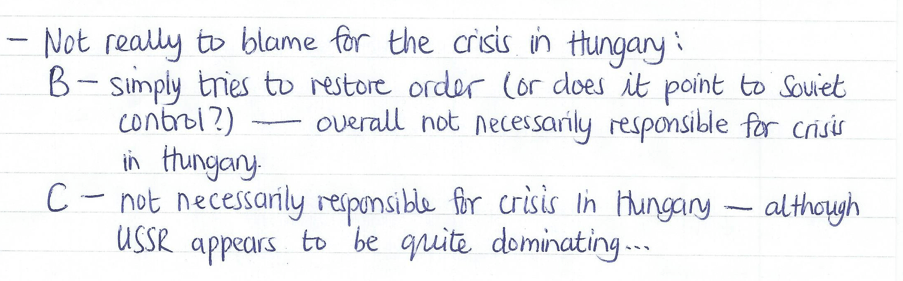 - Not really to blame for the crisis in Hungary:
B - simply tries to restore order (or does it point to Soviet
control?) — overall not necessarily responsible for crisis
in Hungary.
C - not necessarily responsible for crisis in Hungary - although
USSR appears to be quite dominating...